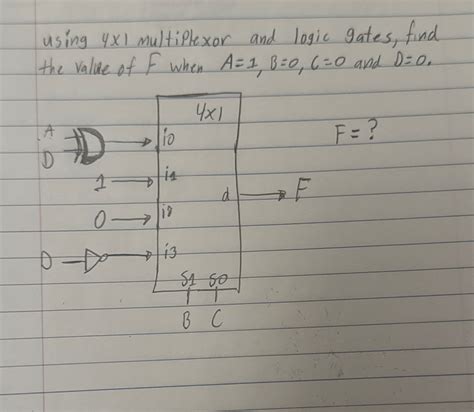 using 4x1 multiplexor and logic gates, find
the value of F when A=1, B=0, C=0 and D=0.
4x1
A
D
i0
F = ?
1
i1
d
F
0
i2
D
i3
S1 S0
B C